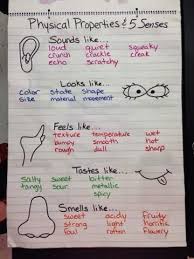 Physical Properties & 5 Senses
Sounds like...
loud quiet squeaky
crunch crackle creak
echo scratchy
Looks like...
color state shape
size material movement
Feels like...
texture temperature wet
bumpy smooth hot
rough dull sharp
Tastes like...
salty sour bitter
tangy metallic
spicy
Smells like...
sweet acidy fruity
strong light horrific
foul rotten flowery